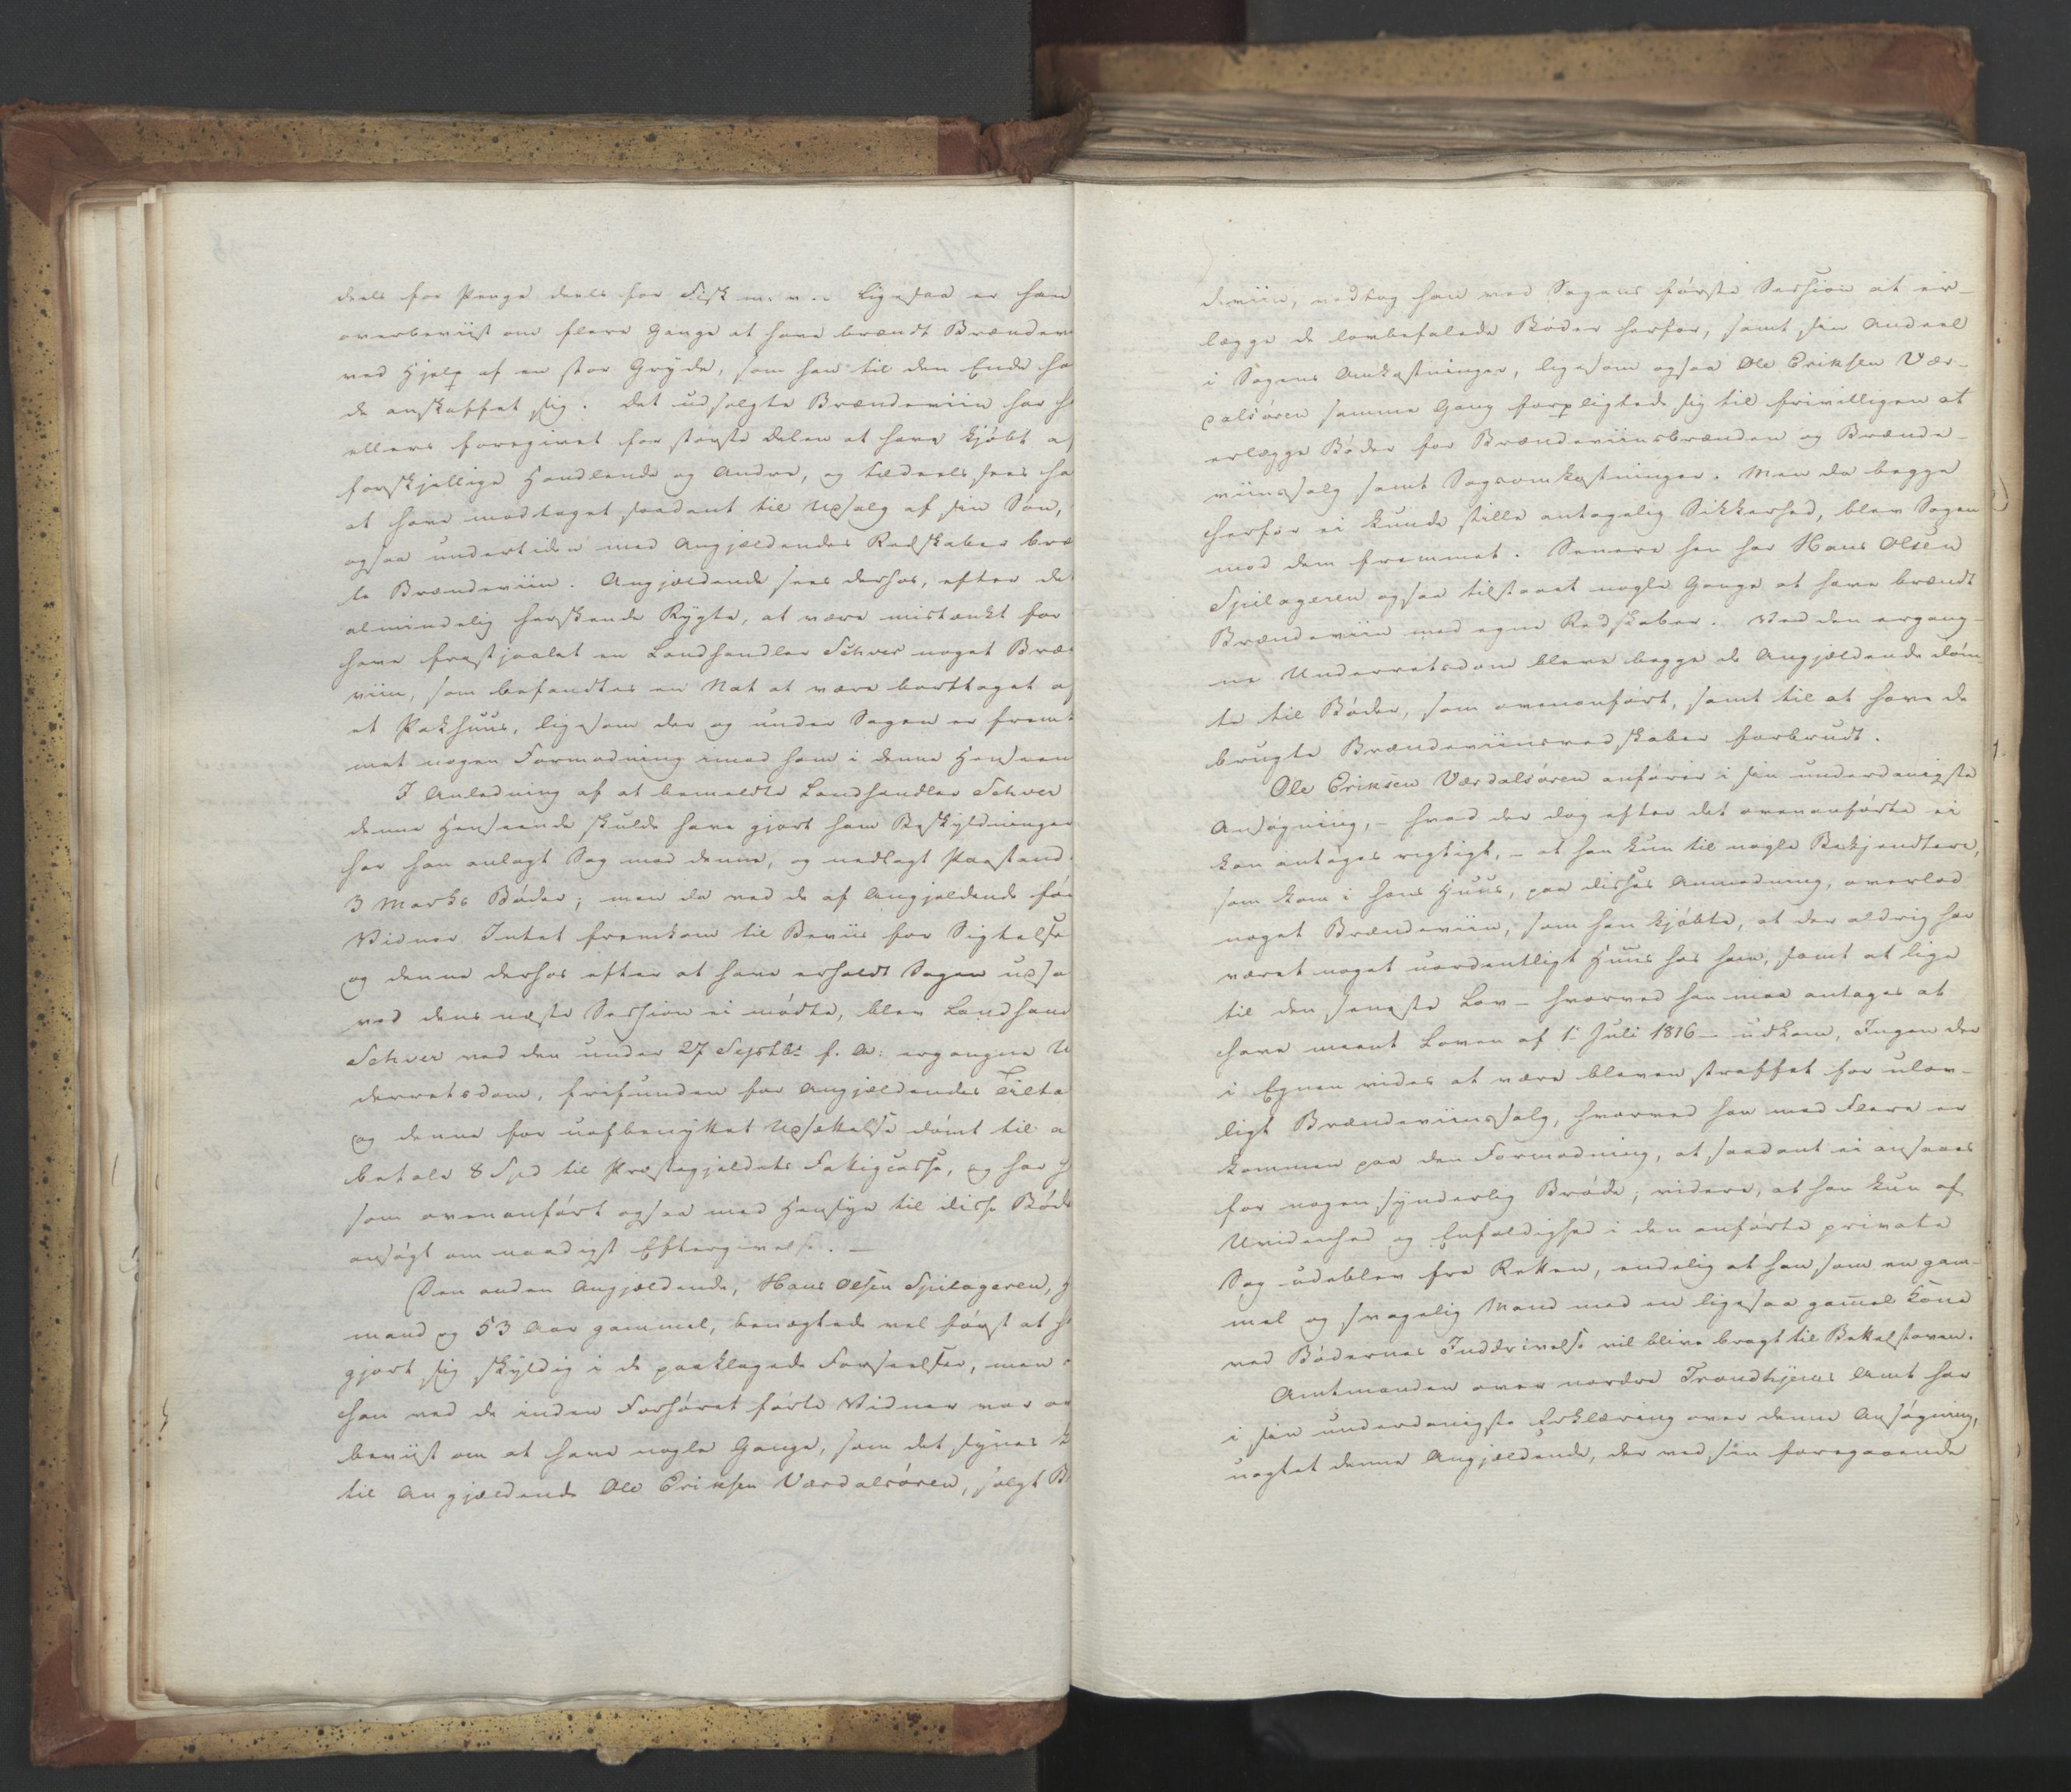 deels for Penge deels for Fisk m. v. Ligesaa er han
overbeviist om flere Gange at have brændt Brændev
ved Hjelp af en stor Gryde, som han til den Ende ha
de anskaffet sig. Det udsolgte Brændeviin har h
ellers foregivet for største delen at have kjøbt af
forskjellige Handlende og Andre, og tildeels sees ha
at have modtaget saadant til Upsalg af sin Søn,
ogsaa undertiden med Angjældendes Redskaber bræ
te Brændeviin. Angjældende sees derhos, efter det
almindelig herskende Rygte, at være mistænkt for
have frastjaalet en Landhandler Schver noget Bræ
viin, som befandtes en Nat at være borttaget af
et Pakhuus, ligesom der og under Sagen er fremt
met nogen Formodning imod ham i denne Henseen
I Anledning af at bemeldte Landhandler Schver
denne Henseende skulde have gjort ham Beskyldninger
har han anlagt Sag mod denne, og nedlagt Paastand
3 Marks Bøder; men da ved de af Angjeldende før
Vidner Intet fremkom til Beviis for Sigtelse
og denne derhos efter at have erholdt Sagen udsa
ved dens næste Session ei mødte, blev Landhand
Schver ved den under 27 Septbr f. A. ergangne U
derretsdom, frifunden for Angjældendes Tilta
og denne for uafbenyttet Upsættelse dømt til a
betale 8 Spd til Præstegjeldets Fattigcasse, og har h
som ovenanført ogsaa med Hensyn til disse Bøde
ansøgt om naadigst Eftergivelse. —
Den anden Angjældende, Hans Olsen Spilageren, g
mand og 53 Aar gammel, benægtede vel først at h
gjort sig skyldig i de paaklagede Forseelser, men
han ved de inden Forhøret førte Vidner var ov
beviist om at have nogle Gange, som det synes k
til Angjældende Ole Eriksen Værdalsøren, solgt B
deviin, vedtog han ved Sagens første Session at er-
lægge de lovbefalede Bøder herfor, samt sin Andeel
i Sagens Omkostninger, ligesom ogsaa Ole Eriksen Vær-
dalsøren samme Gang forpligtede sig til frivilligen at
erlægge Bøder for Brændeviinsbrænden og Brænde-
viinssalg samt Sagsomkostninger. Men da begge
herfor ei kunde stille antagelig Sikkerhed, blev Sagen
mod dem fremmet. Senere hen har Hans Olsen
Spilageren ogsaa tilstaaet nogle Gange at have brændt
Brændeviin med egne Redskaber. Ved den ergang-
ne Underretsdom bleve begge de Angjældende døm-
te til Bøder, som ovenanført, samt til at have de
brugte Brændeviinsredskaber forbrudt.
Ole Eriksen Værdalsøren anfører i sin underdanigste
Ansøgning, – hvad der dog efter det ovenanførte ei
kan antages rigtigt, – at han kun til nogle Bekjendtere,
som kom i hans Huus, paa disses Anmodning, overlod
noget Brændeviin, som han kjøbte, at der aldrig har
været noget uordentligt Huus hos ham, samt at lige
til den seneste Lov – hvorved han maa antages at
have meent Loven af 1 Juli 1816 – udkom, Ingen der
i Egnen vides at være bleven straffet for ulov-
ligt Brændeviinssalg, hvorved han med Flere er
kommen paa den Formodning, at saadant ei ansaaes
for nogen synderlig Brøde; videre, at han kun af
Uvidenhed og Enfoldighed i den anførte private
Sag udeblev fra Retten, endelig at han som en gam-
mel og svagelig Mand med en ligesaa gamel Kone
ved Bødernes Inddrivelse vil blive bragt til Bettelstaven.
Amtmanden over nordre Trondhjems Amt har
i sin underdanigste Erklæring over denne Ansøgning,
uagtet denne Angjældende, der ved sin foregaaende